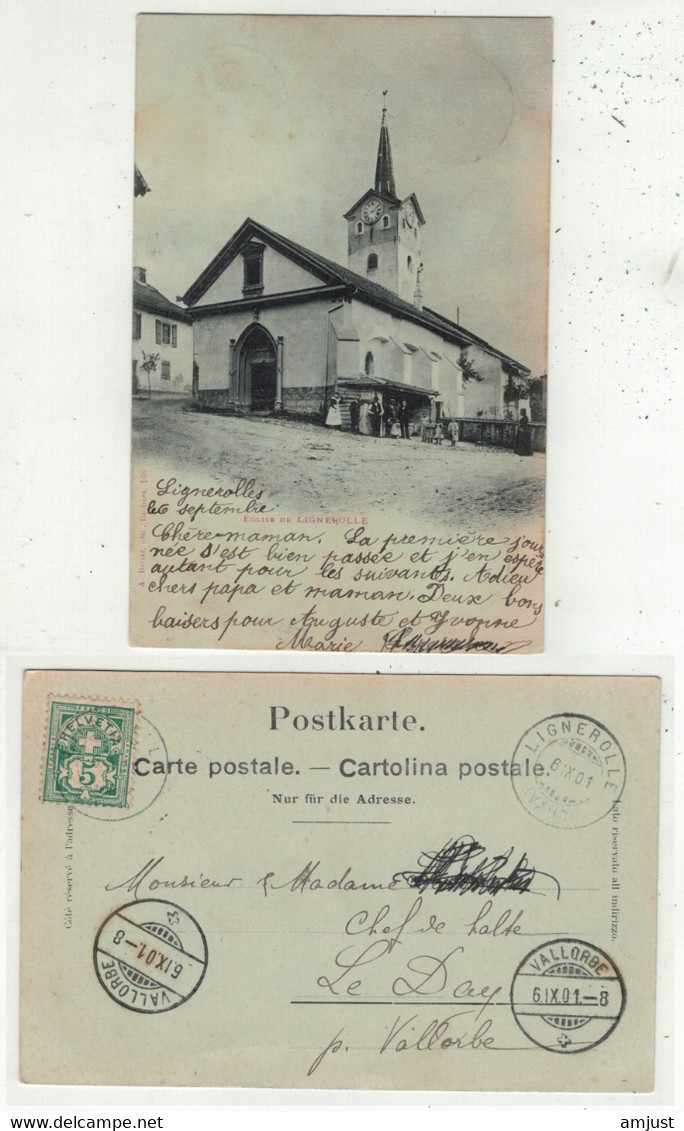 A. Deriaz, édit., Baulmes, 166
Lignerolles
le 6 septembre
EGLISE DE LIGNEROLLE
Chère maman. La première jour
née s'est bien passée et j'en espère
autant pour les suivants. Adieu
chers papa et maman. Deux bons
baisers pour Auguste et Yvonne
Marie
FRANCO
HELVETIA
5
Postkarte.
Carte postale. — Cartolina postale.
Nur für die Adresse.
Côté réservé à l'adresse
Lato riservato all indirizzo.
LIGNEROLLE
6.IX.01
(VAUD)
Monsieur & Madame
Chef de halte
Le Day
p. Vallorbe
6.IX.01.-8
VALLORBE
VALLORBE
6.IX.01.-8
www.delcampe.net
amjust